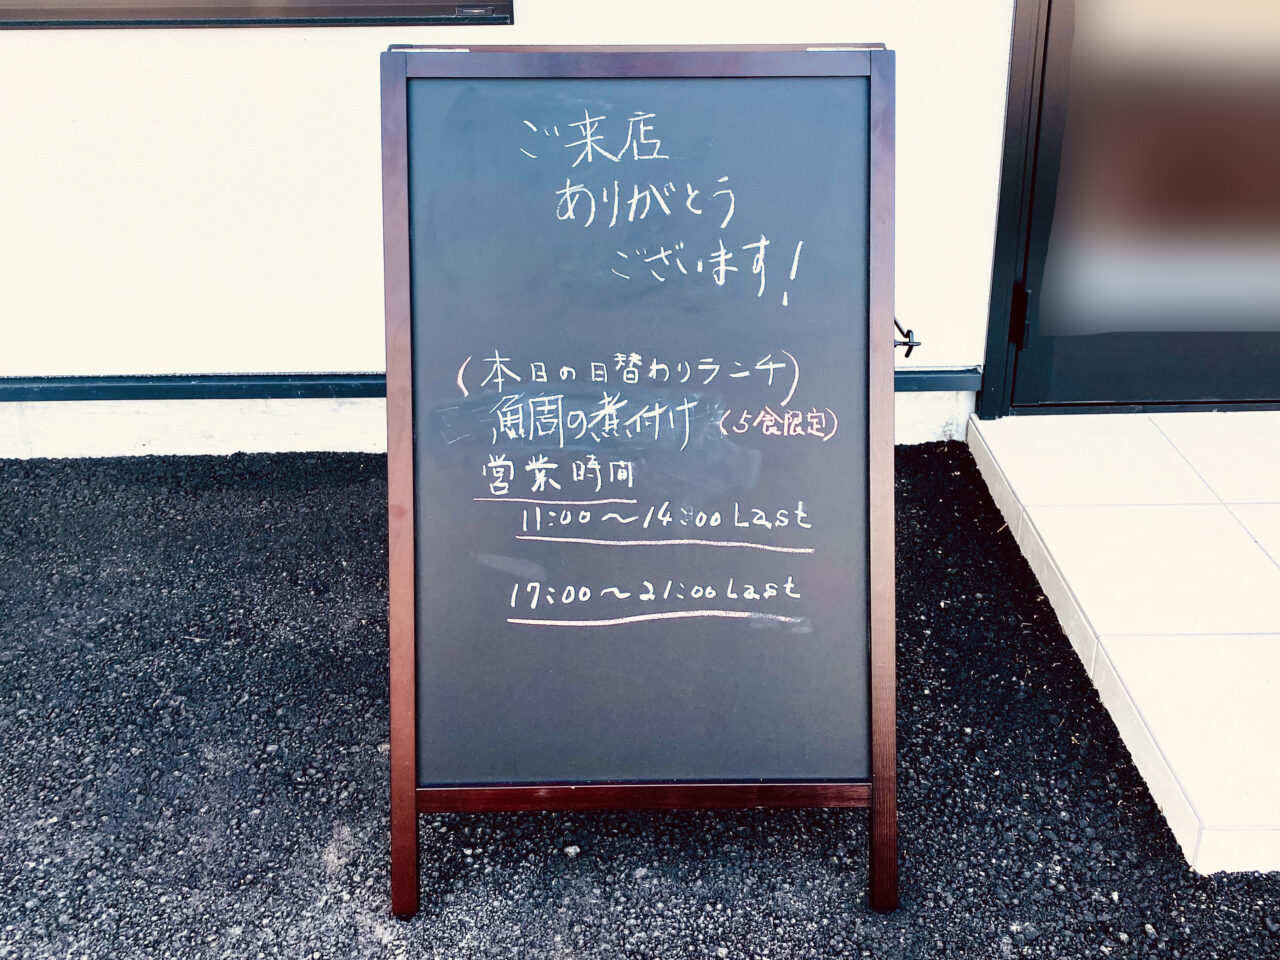 ご来店
ありがとう
ございます!
(本日の日替わりランチ)
魚周の煮付け (5食限定)
営業時間
11:00〜14:00 Last
17:00〜21:00 Last